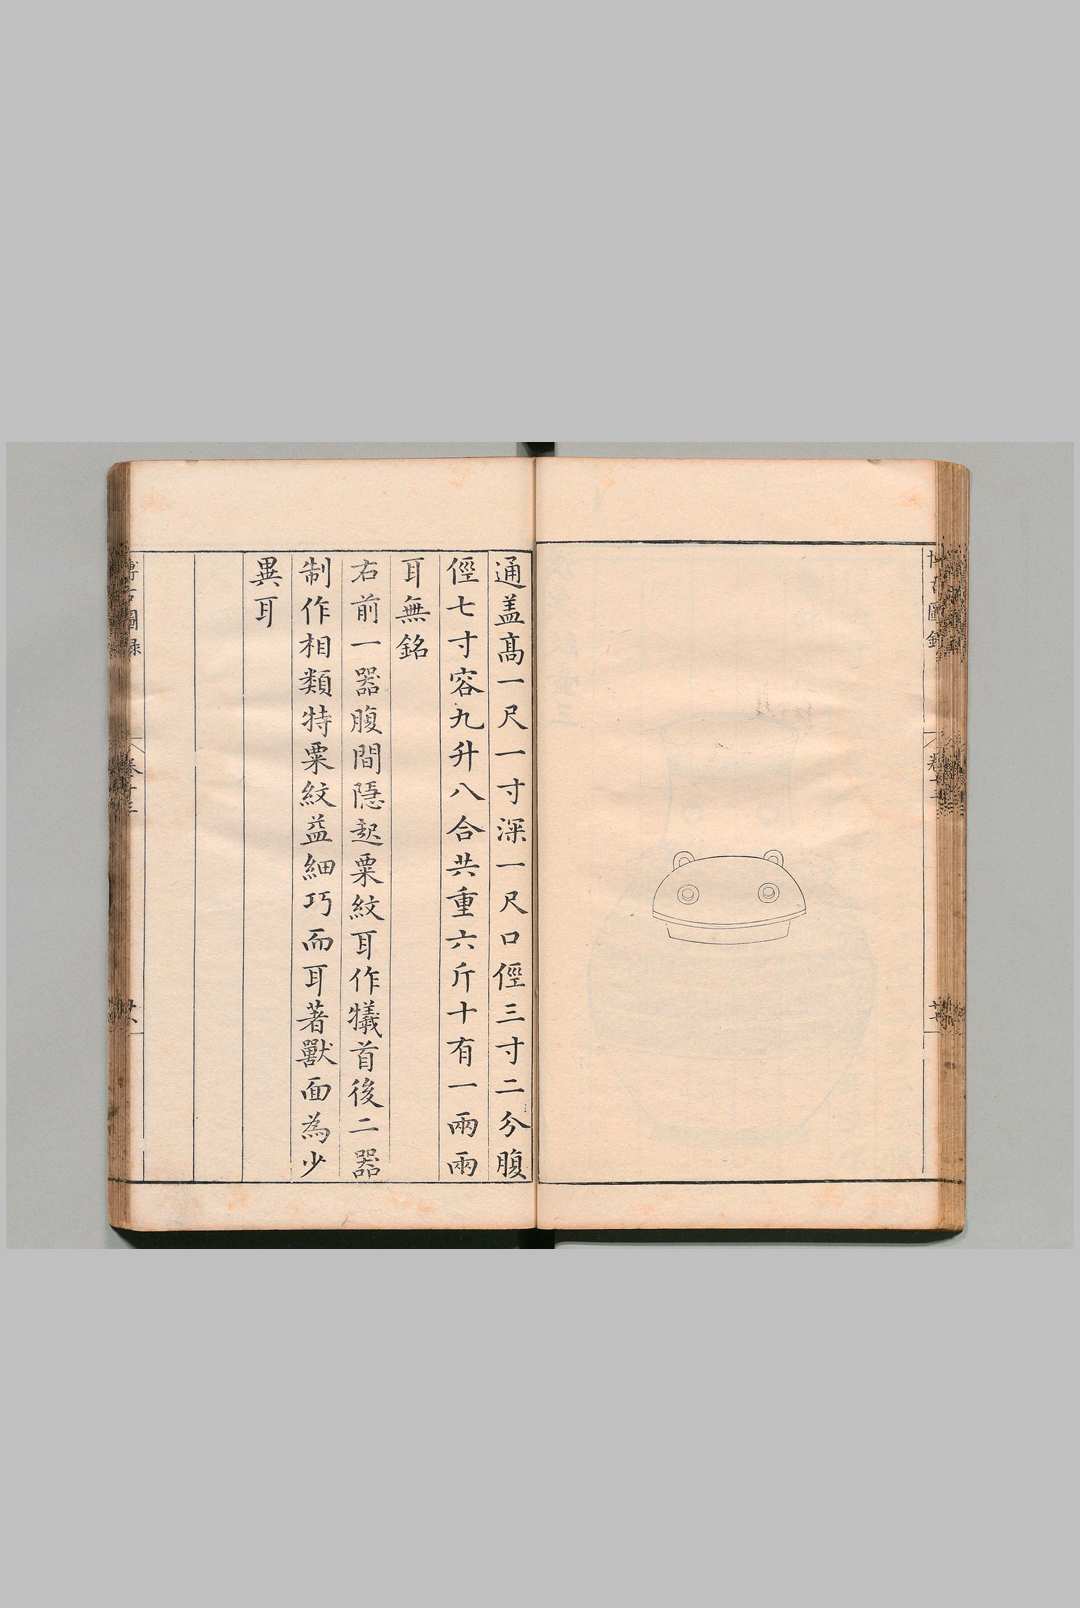 通盖髙一尺一寸深一尺口徑三寸二分腹
徑七寸容九升八合共重六斤十有一兩兩
耳無銘
右前一器腹間隱起粟紋耳作犧首後二器
制作相類特粟紋益細巧而耳著獸面為少
異耳
博古圖錄
卷十三